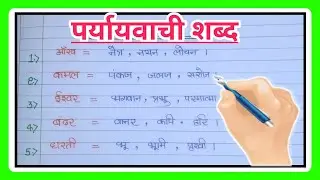 पर्यायवाची शब्द
1> आँख = नेत्र, नयन, लोचन ।
2> कमल = पंकज, जलज, सरोज
3> ईश्वर = भगवान, प्रभु, परमात्मा
4> बंदर = वानर, कपि, हरि ।
5> धरती = भू, भूमि, पृथ्वी ।